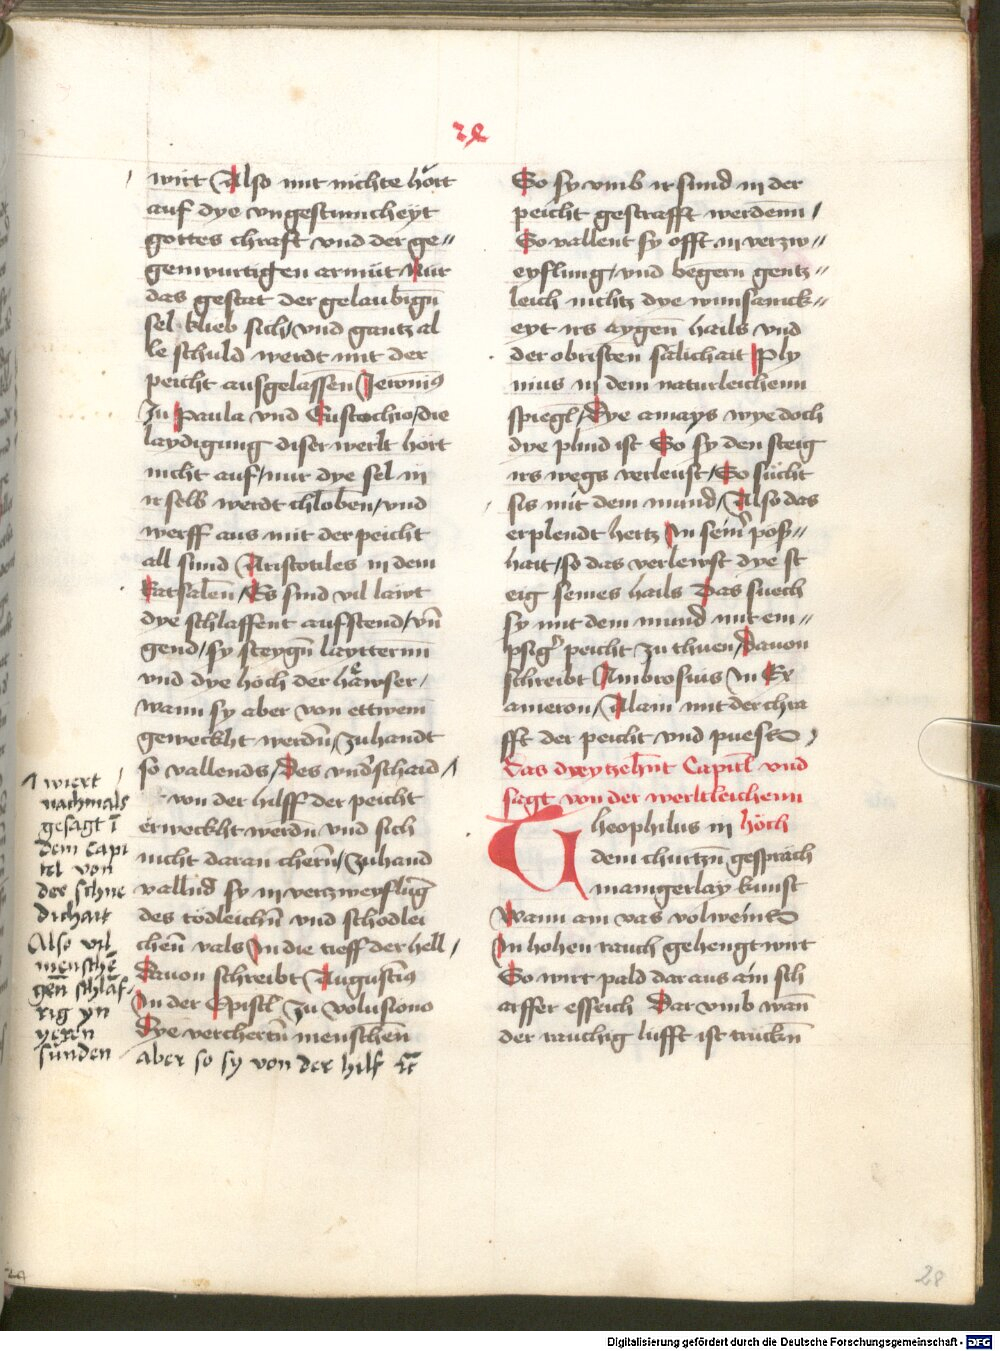 28
wirt Also mit nichte hört
auf dye vngestumcheyt
gottes chraft vnd der ge„
genwurtigen armüt Nür
das gestat der gelaubign̄
sel klieb sich/ vnd gantz al
le schuld werdt mit der
peicht ausgelassen Jeronīꝰ
Zu Paula vnd Eustochio/ die
laydigung diser werlt hört
nicht auf/ nur dye sel in
ir selb werdt chloben/ vnd
werff aus mit der peicht
all sünd Aristotiles in dem
Ratsalen̄/ Es sind vil läwt
dye schlaffent aufstend/ vn̄
gend/ sy steygn̄ laytternn
vnd dye höch der häwser/
wann sy aber von ettwem
geweckht werdn̄/ zuhandt
so vallends/ Des vnd'schaid/
von der hilff der peicht
erweckht werdn̄ vnd sich
nicht daran chern̄/ zuhand
vallnd sy in vertzweyflūg
des tödleichn̄ vnd schodlei
chen̄ vals In die tieff der hell/
Dauon schreibt Augustinꝰ
In der Epistl̄ Zu Volusiono
Dye verchertn̄ menschen̄
aber so sy von der hilf ꝛc̄
wiert
nachmals
gesagt ī
dem capi
tel von
der schne
dichait
Also vil
menschē
gen̄ schlaf/
rig yn
yeren
sünden
So sy vmb ir sünd in der
peicht gestrafft werdenn/
So vallent sy offt in verzw„
eyflung/ vnd begern gentz„
leich nichtz dye wunsamck„
eyt irs aygen̄ hails vnd
der obristen sälichait Ply
nius in dem naturleichenn
spiegl̄/ Dye amays wye doch
dye plind ist So sy den steig
irs wegs verleust/ So sücht
sis mit dem mund/ Also das
erplendt hertz In sein̄' poß„
hait/ so das verlewst dye st
eig seines hails Das suech
sy mit dem mund mit em„
psig' peicht zu thuen/ Dauon
schreibt Ambrosius In Ex
ameron/ Allain mit der chra
fft der peicht vnd puess
Das dreytzehn̄t Capitl̄ vnd
sagt von der werltleichenn
Theophilus in höch
dem churtzn̄ gespräch
manigerlay kunst
Wann ain vas vol weins
In hohen rauch gehengt wirt
So wirt pald daraus ain sch
arffer esseich Dar vmb wan̄
der rauchig lufft ist truckn̄
28
Digitalisierung gefördert durch die Deutsche Forschungsgemeinschaft - DFG